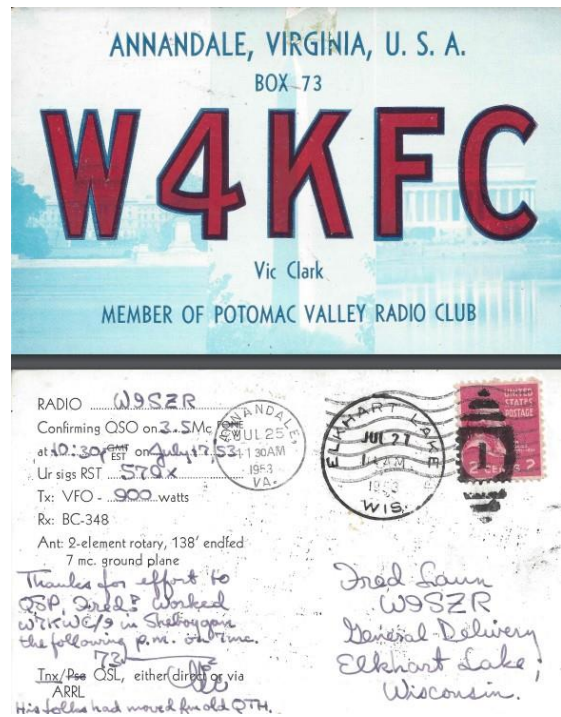 ANNANDALE, VIRGINIA, U. S. A.
BOX 73
W4KFC
Vic Clark
MEMBER OF POTOMAC VALLEY RADIO CLUB
RADIO W9SZR
Confirming QSO on 3.5 Mc FONE
at 10:30 GMT EST on July 17, 53
Ur sigs RST 579X
Tx: VFO - 900 watts
Rx: BC-348
Ant: 2-element rotary, 138' endfed
7 mc. ground plane
Thanks for effort to
QSP, Fred! Worked
W7KWC/9 in Sheboygan
the following p.m. on 7 mc.
73
Vic
Tnx/Pse QSL, either direct or via
ARRL
His folks had moved fm old QTH.
ANNANDALE,
JUL 25
11 30 AM
1953
VA.
ELKHART LAKE
JUL 27
AM
1953
WIS.
UNITED
STATES
POSTAGE
2 CENTS 2
1
Fred
W9SZR
General Delivery
Elkhart Lake,
Wisconsin.